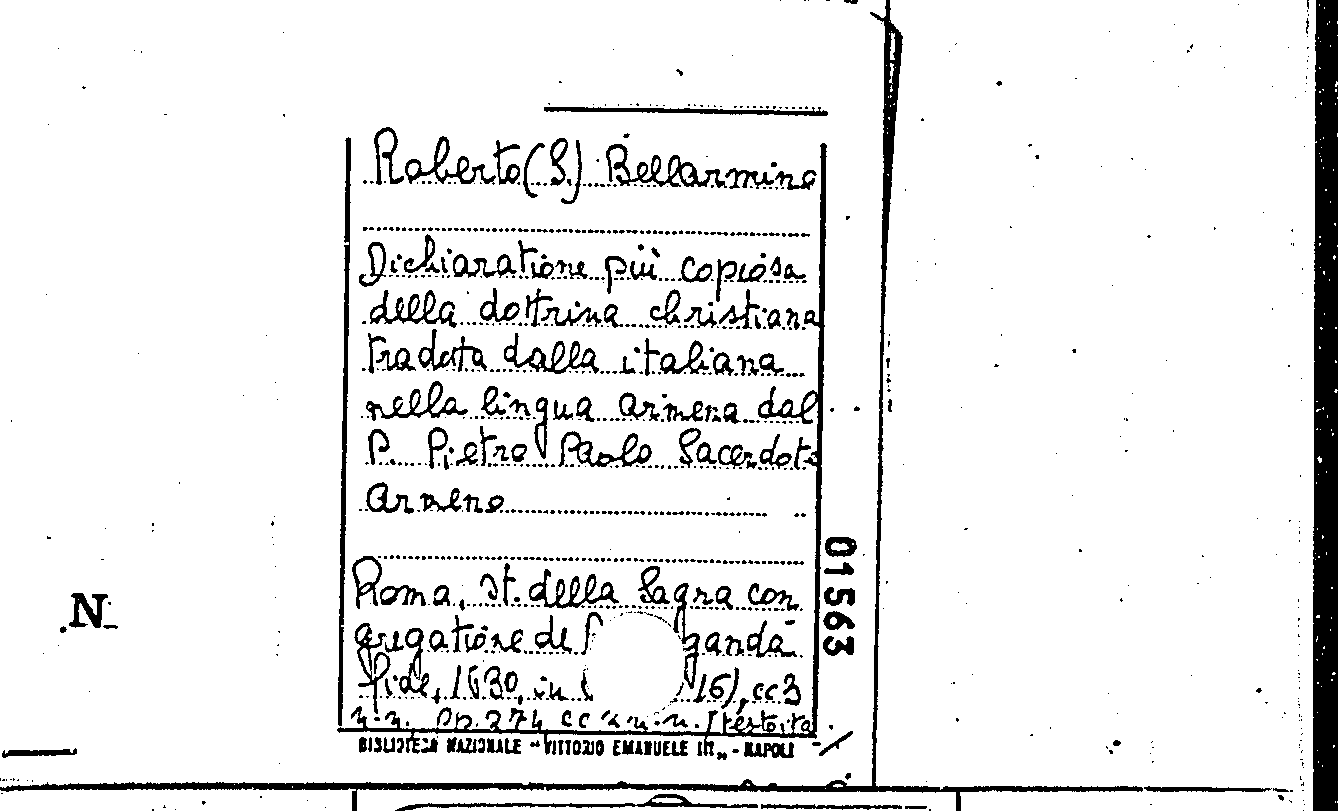 Roberto (S.) Bellarmino
Dichiaratione più copiosa
della dottrina christiana
tradota dalla italiana
nella lingua armena dal
P. Pietro Paolo Sacerdote
armeno
Roma, St. della Sagra con
gregatione de ganda
fide, 1630, in 16), cc 3
n.n. pp. 274 cc n.n.
BIBLIOTECA NAZIONALE "VITTORIO EMANUELE III„ - NAPOLI
01563
N